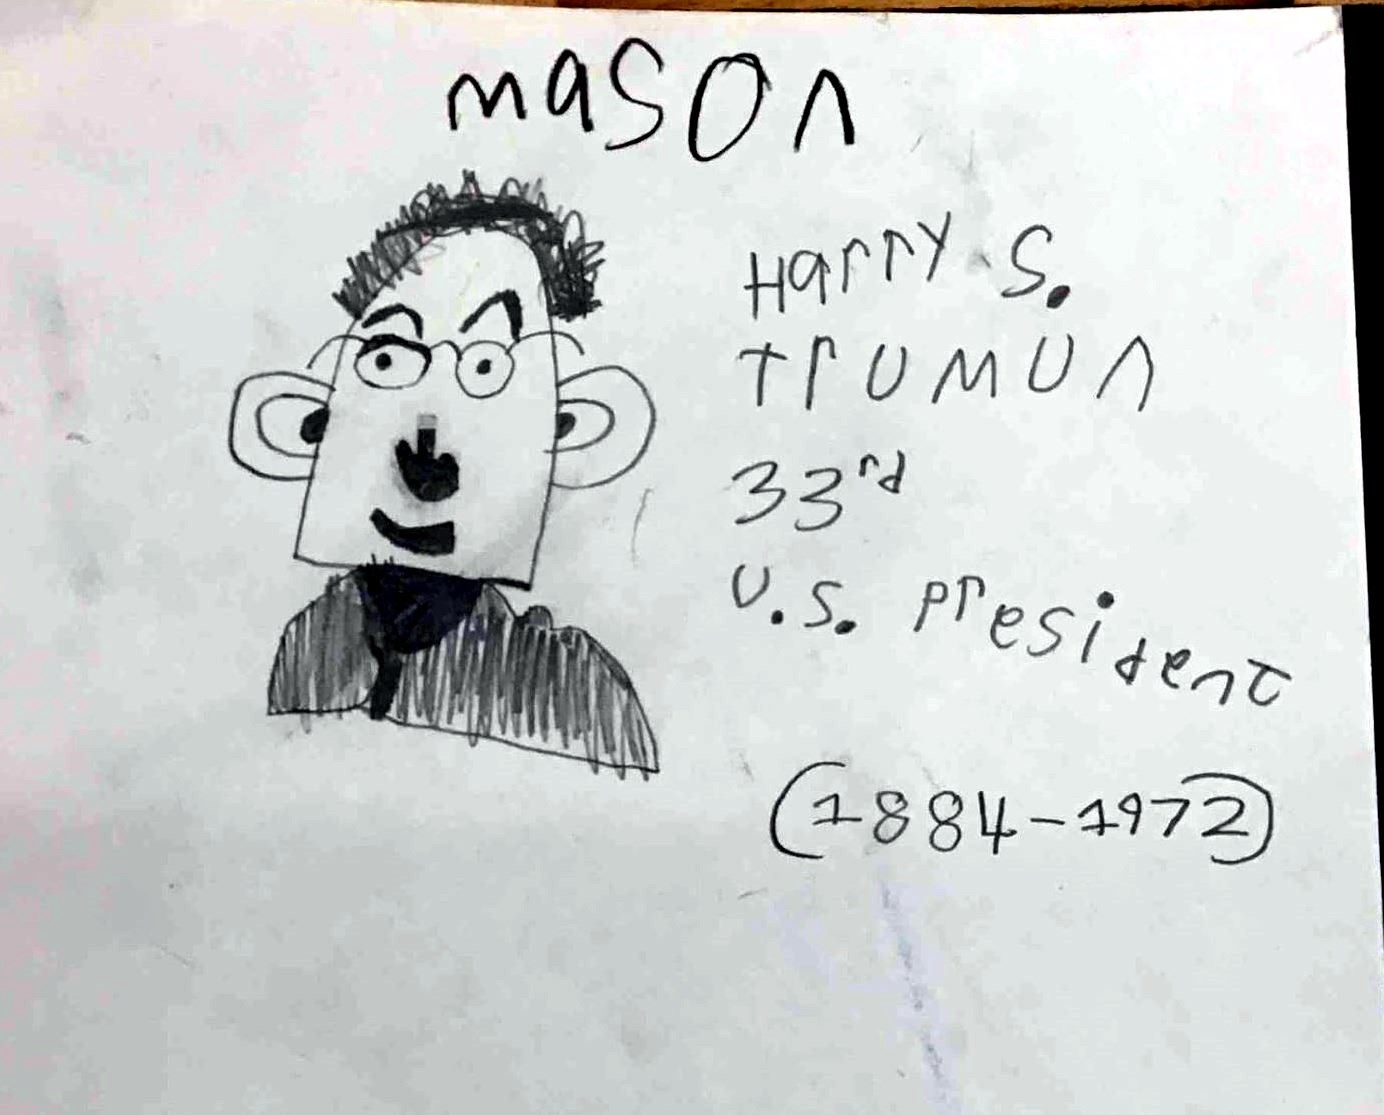 mason
Harry S.
Trumun
33rd
U.S. President
(1884-1972)